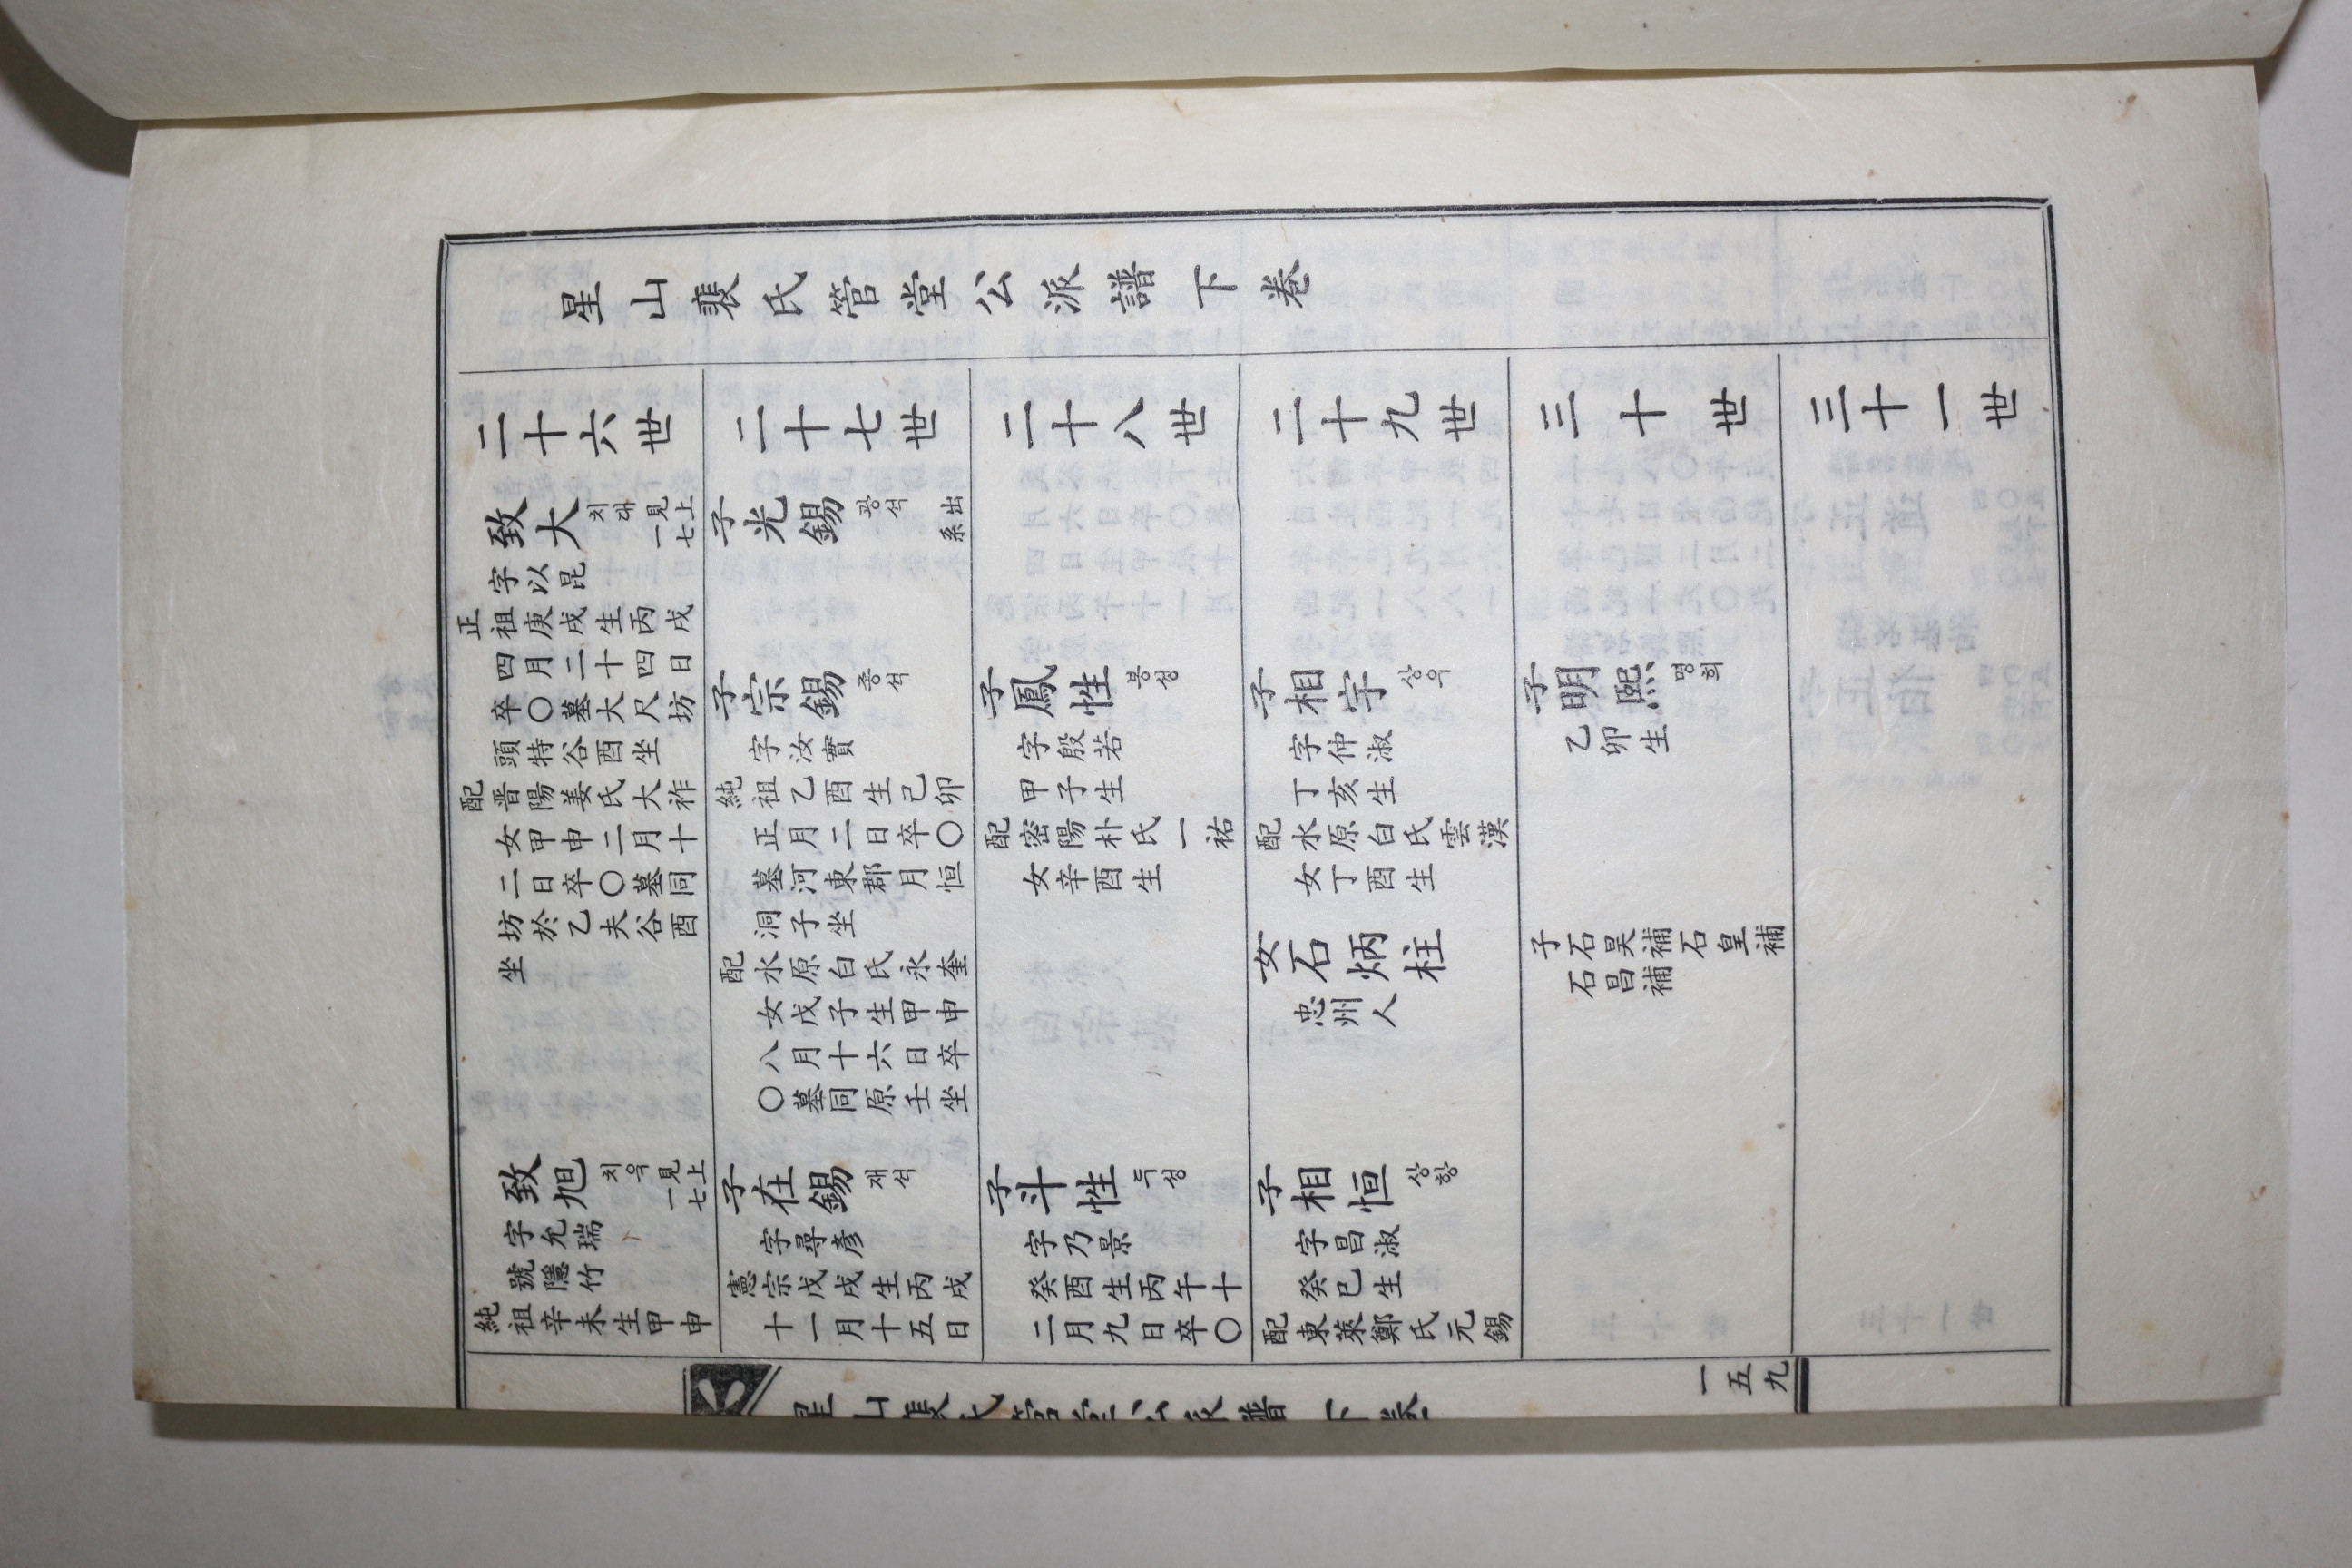 星山裴氏管堂公派譜下卷
二十六世
致大 치대 見上一七
字以昆
正祖庚戌生丙戌
四月二十四日
卒〇墓大尺坊
頭特谷酉坐
配晋陽姜氏大祚
女甲申二月十
二日卒〇墓同
坊於乙夫谷酉
坐
致旭 치욱 見上一七
字允瑞
號隱竹
純祖辛未生甲申
二十七世
子光錫 광석 出系
子宗錫 종석
字汝實
純祖乙酉生己卯
正月二日卒〇
墓河東郡月恒
洞子坐
配水原白氏永奎
女戊子生甲申
八月十六日卒
〇墓同原壬坐
子在錫 재석
字尋彦
憲宗戊戌生丙戌
十一月十五日
二十八世
子鳳性 봉성
字殷若
甲子生
配密陽朴氏一祐
女辛酉生
子斗性 두성
字乃景
癸酉生丙午十
二月九日卒〇
二十九世
子相宇 상우
字仲淑
丁亥生
配水原白氏雲漢
女丁酉生
女石炳柱
忠州人
子相恒 상항
字昌淑
癸巳生
配東萊鄭氏元錫
三十世
子明熙 명희
乙卯生
子石昊補石皇補
石昌補
三十一世
星山裴氏管堂公派譜下卷
一五九